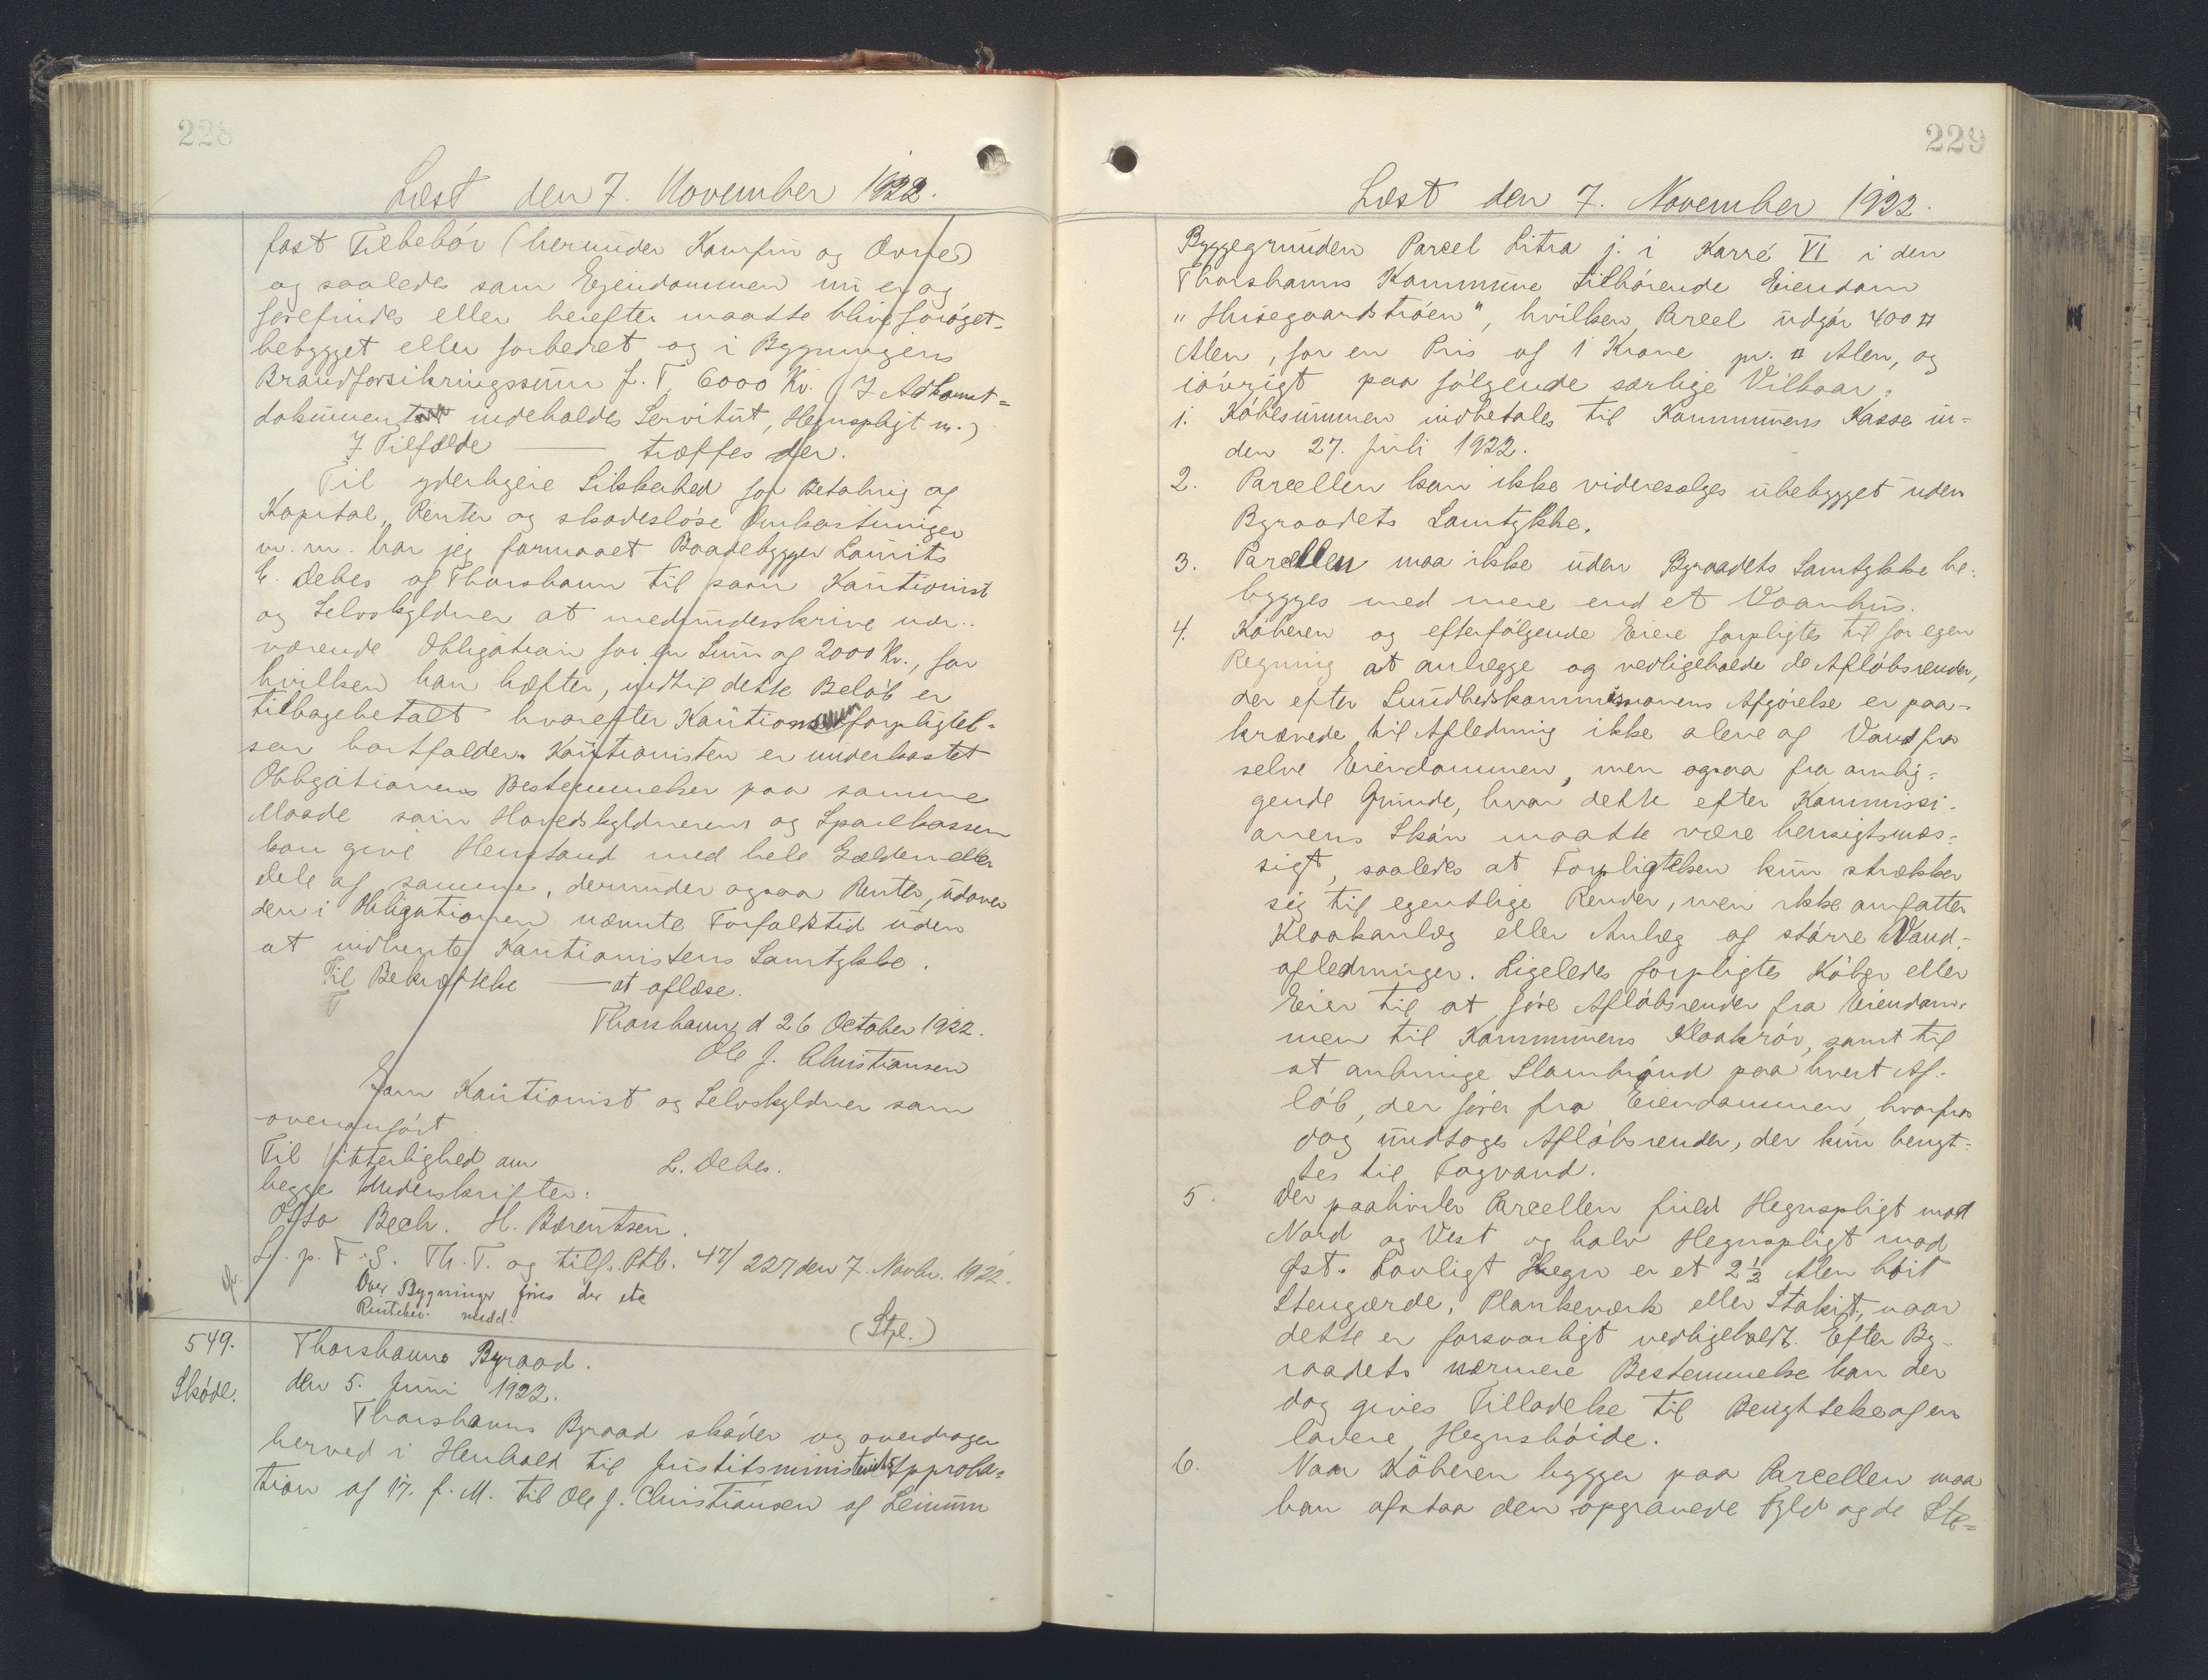 228
Læst den 7. November 1922.
fast Tilbehör (herunder Komfur og Ovne)
og saaledes som Ejendommen nu er og
forefindes eller herefter maatte blive forøget,
bebygget eller forbedret og i Bygningens
Brandforsikringssum f. T. 6000 Kr. (I Adkomst=
dokument indeholdes Servitut, Hegnspligt m.)
I Tilfælde — træffes der.
Til yderligere Sikkerhed for Betaling af
Kapital, Renter og skadesløse Omkostninger
m.m. har jeg formaaet Baadebygger Laurits
E. Debes af Thorshavn til som Kautionist
og Selvskyldner at medunderskrive nær-
værende Obligation for en Sum af 2000 Kr., for
hvilken han hæfter, indtil dette Beløb er
tilbagebetalt hvorefter Kautionsforpligtel-
sen bortfalder. Kautionisten er underkastet
Obligationens Bestemmelser paa samme
Maade som Hovedskyldneren og Sparekassen
kan give Henstand med hele Gælden eller
dele af samme, derunder ogsaa Renter, udover
den i Obligationen nævnte Forfaldstid uden
at indhente Kautionistens Samtykke.
Til Bekræftelse — at aflæse.
Thorshavn d 26 October 1922.
Ole J. Christiansen
Som Kautionist og Selvskyldner som
ovenanfört
Til Vitterlighed om L. Debes.
begge Underskrifter:
Otto Bech. H. Bærentsen.
L. p. F. S. Th. T. og tilf. Ptb. 47/227 den 7. Novbr. 1922.
Over Bygninger föres der ete
medd.
(Stpl.)
549. Thorshavns Byraad.
Sködе. den 5. Juni 1922.
Thorshavns Byraad sköder og overdrager
herved i Henhold til Justitsministeriets Approba=
tion af 17. f. M. til Ole J. Christiansen af Leinum
229
Læst den 7. November 1922.
Byggegrunden Parcel Litra j. i Karré VI i den
Thorshavns Kommune tilhørende Eiendom
"Husegaardstróen", hvilken Parcel udgör 400 □
Alen, for en Pris af 1 Krone pr. □ Alen, og
iövrigt paa fölgende særlige Vilkaar.
1. Köbesummen indbetales til Kommunens Kasse in-
den 27. Juli 1922.
2. Parcellen kan ikke videresælges ubebygget uden
Byraadets Samtykke.
3. Parcellen maa ikke uden Byraadets Samtykke be-
bygges med mere end et Vaanhus.
4. Köberen og efterfölgende Eiere forpligtes til for egen
Regning at anlægge og vedligeholde de Aflöbsrender,
der efter Sundhedskommissionens Afgörelse er paa-
krævede til Afledning ikke alene af Vand fra
selve Eiendommen, men ogsaa fra omlig=
gende Grunde, hvor dette efter Kommissi-
onens Skön maatte være hensigtsmæs=
sigt, saaledes at Forpligtelsen kun strækker
sig til egentlige Render, men ikke omfatter
Kloakanlæg eller Anlæg af större Vand-
afledninger. Ligeledes forpligtes Köber eller
Eier til at före Aflöbsrender fra Eiendom-
men til Kommunens Kloakrör, samt til
at anbringe Slambrönd paa hvert Af-
löb, der förer fra Eiendommen, hvorfra
dog undtages Aflöbsrender, der kun benyt=
tes til Tagvand.
5. Der paahviler Parcellen fuld Hegnspligt mod
Nord og Vest og halv Hegnspligt mod
Öst. Lovligt Hegn er et 2½ Alen höit
Stengærde, Plankeværk eller Stakit, naar
dette er forsvarligt vedligeholdt. Efter By-
raadets nærmere Bestemmelse kan der
dog gives Tilladelse til Benyttelse af en
lavere Hegnshöide.
6. Naar Köberen bygger paa Parcellen maa
han afstaa den opgravede Fyld og de Ste=